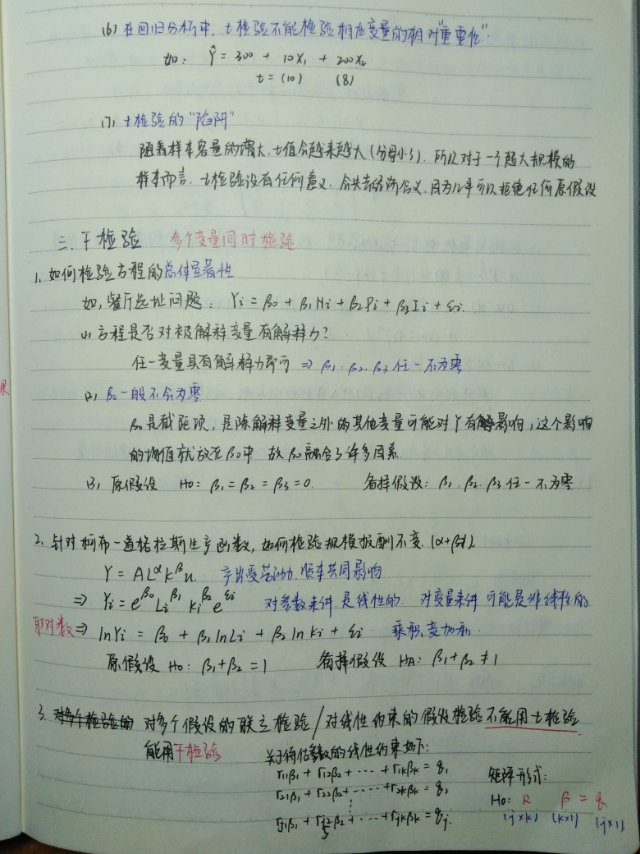 (6) 在回归分析中, t检验不能检验相应变量的相对"重要性".
如: Ŷ = 300 + 10X₁ + 200X₂
t = (10) (8)
(7) t检验的"陷阱"
随着样本容量的增大, t值会越来越大 (分母小了). 所以对于一个超大规模的
样本而言, t检验没有任何意义, 会失去经济含义, 因为几乎可以拒绝任何原假设
三. F检验 多个变量同时检验
1. 如何检验方程的总体显著性
如, 餐厅选址问题: Yi = β₀ + β₁Ni + β₂Pi + β₃Ii + εi.
(1) 方程是否对被解释变量有解释力?
任一变量具有解释力即可 ⇒ β₁. β₂. β₃ 任一不为零
(2) β₀一般不会为零
β₀是截距项, 是除解释变量之外的其他变量可能对Y有影响, 这个影响
的均值就放在β₀中 故β₀融合了许多因素
(3) 原假设 H₀: β₁ = β₂ = β₃ = 0. 备择假设: β₁. β₂. β₃ 任一不为零
2. 针对柯布—道格拉斯生产函数, 如何检验规模报酬不变. (α+β=1).
Y = AL^α K^β u. 产出受劳动力. 资本共同影响
⇒ Yi = e^β₀ Li^β₁ Ki^β₂ e^εi 对参数来件是线性的. 对变量来件可能是非线性的
取对数 ⇒ lnYi = β₀ + β₁lnLi + β₂lnKi + εi 乘积变加和.
原假设 H₀: β₁+β₂ = 1 备择假设 HA: β₁+β₂ ≠ 1
3. 对多个假设的联立检验 / 对线性约束的假设检验不能用t检验
能用F检验
关于待估参数的线性约束如下:
r₁₁β₁ + r₁₂β₂ + ··· + r₁kβk = q₁
r₂₁β₁ + r₂₂β₂ + ··· + r₂kβk = q₂
⋮
rj₁β₁ + rj₂β₂ + ··· + rjkβk = qj.
矩阵形式:
H₀: R β = q
(j×k) (k×1) (j×1)
果